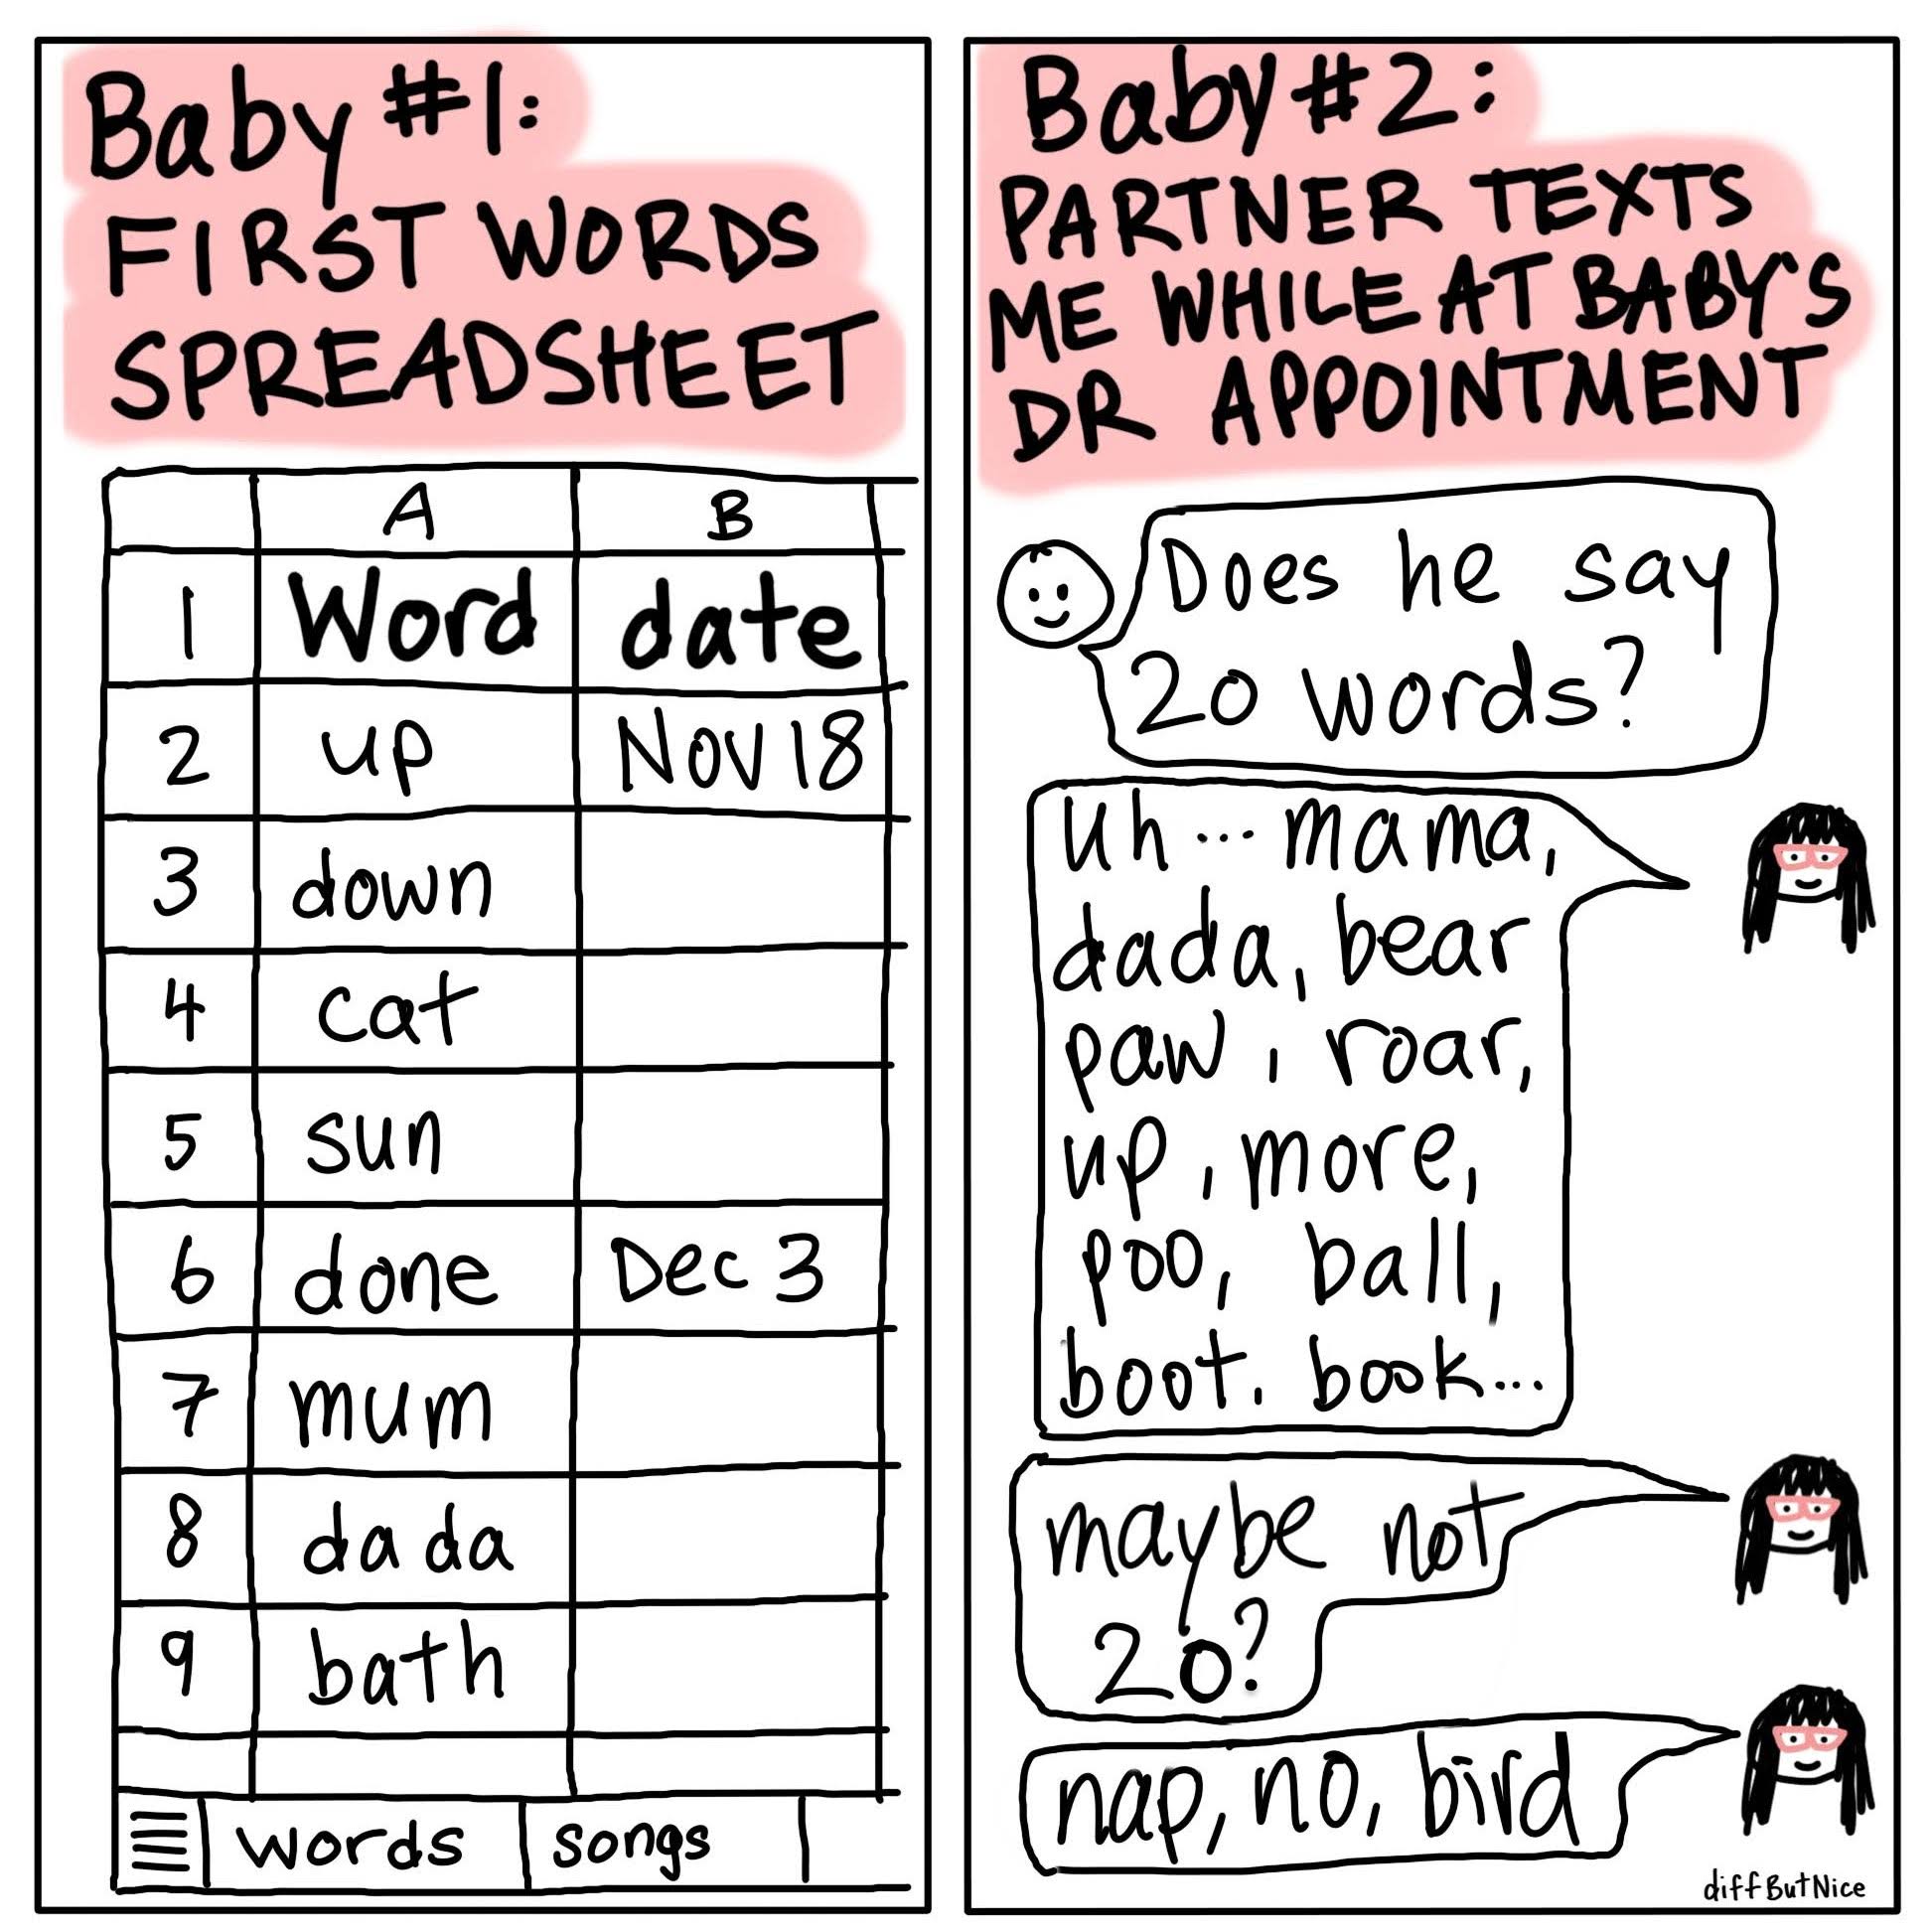 Baby #1:
FIRST WORDS
SPREADSHEET
A B
1 Word date
2 up Nov 18
3 down
4 cat
5 sun
6 done Dec 3
7 mum
8 da da
9 bath
words songs
Baby #2:
PARTNER TEXTS
ME WHILE AT BABY'S
DR APPOINTMENT
Does he say
20 words?
Uh... mama,
dada, bear
paw, roar,
up, more,
poo, ball,
boot. book...
maybe not
20?
nap, no, bird
diffButNice